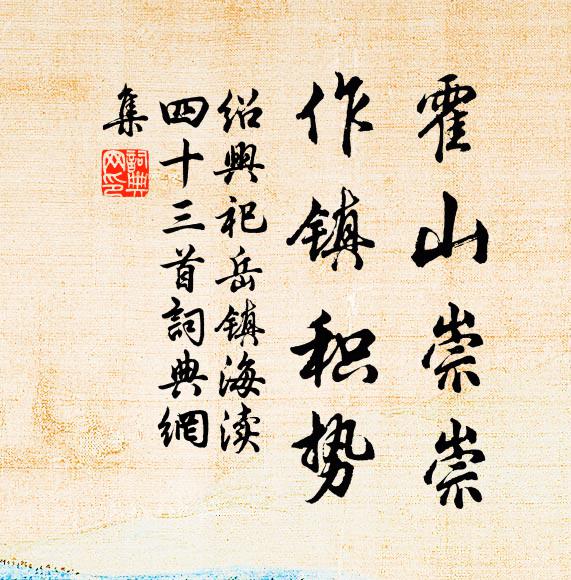 霍山崇崇
作镇积势
绍興祀岳镇海渎
四十三首詞典網
集
詞典网印